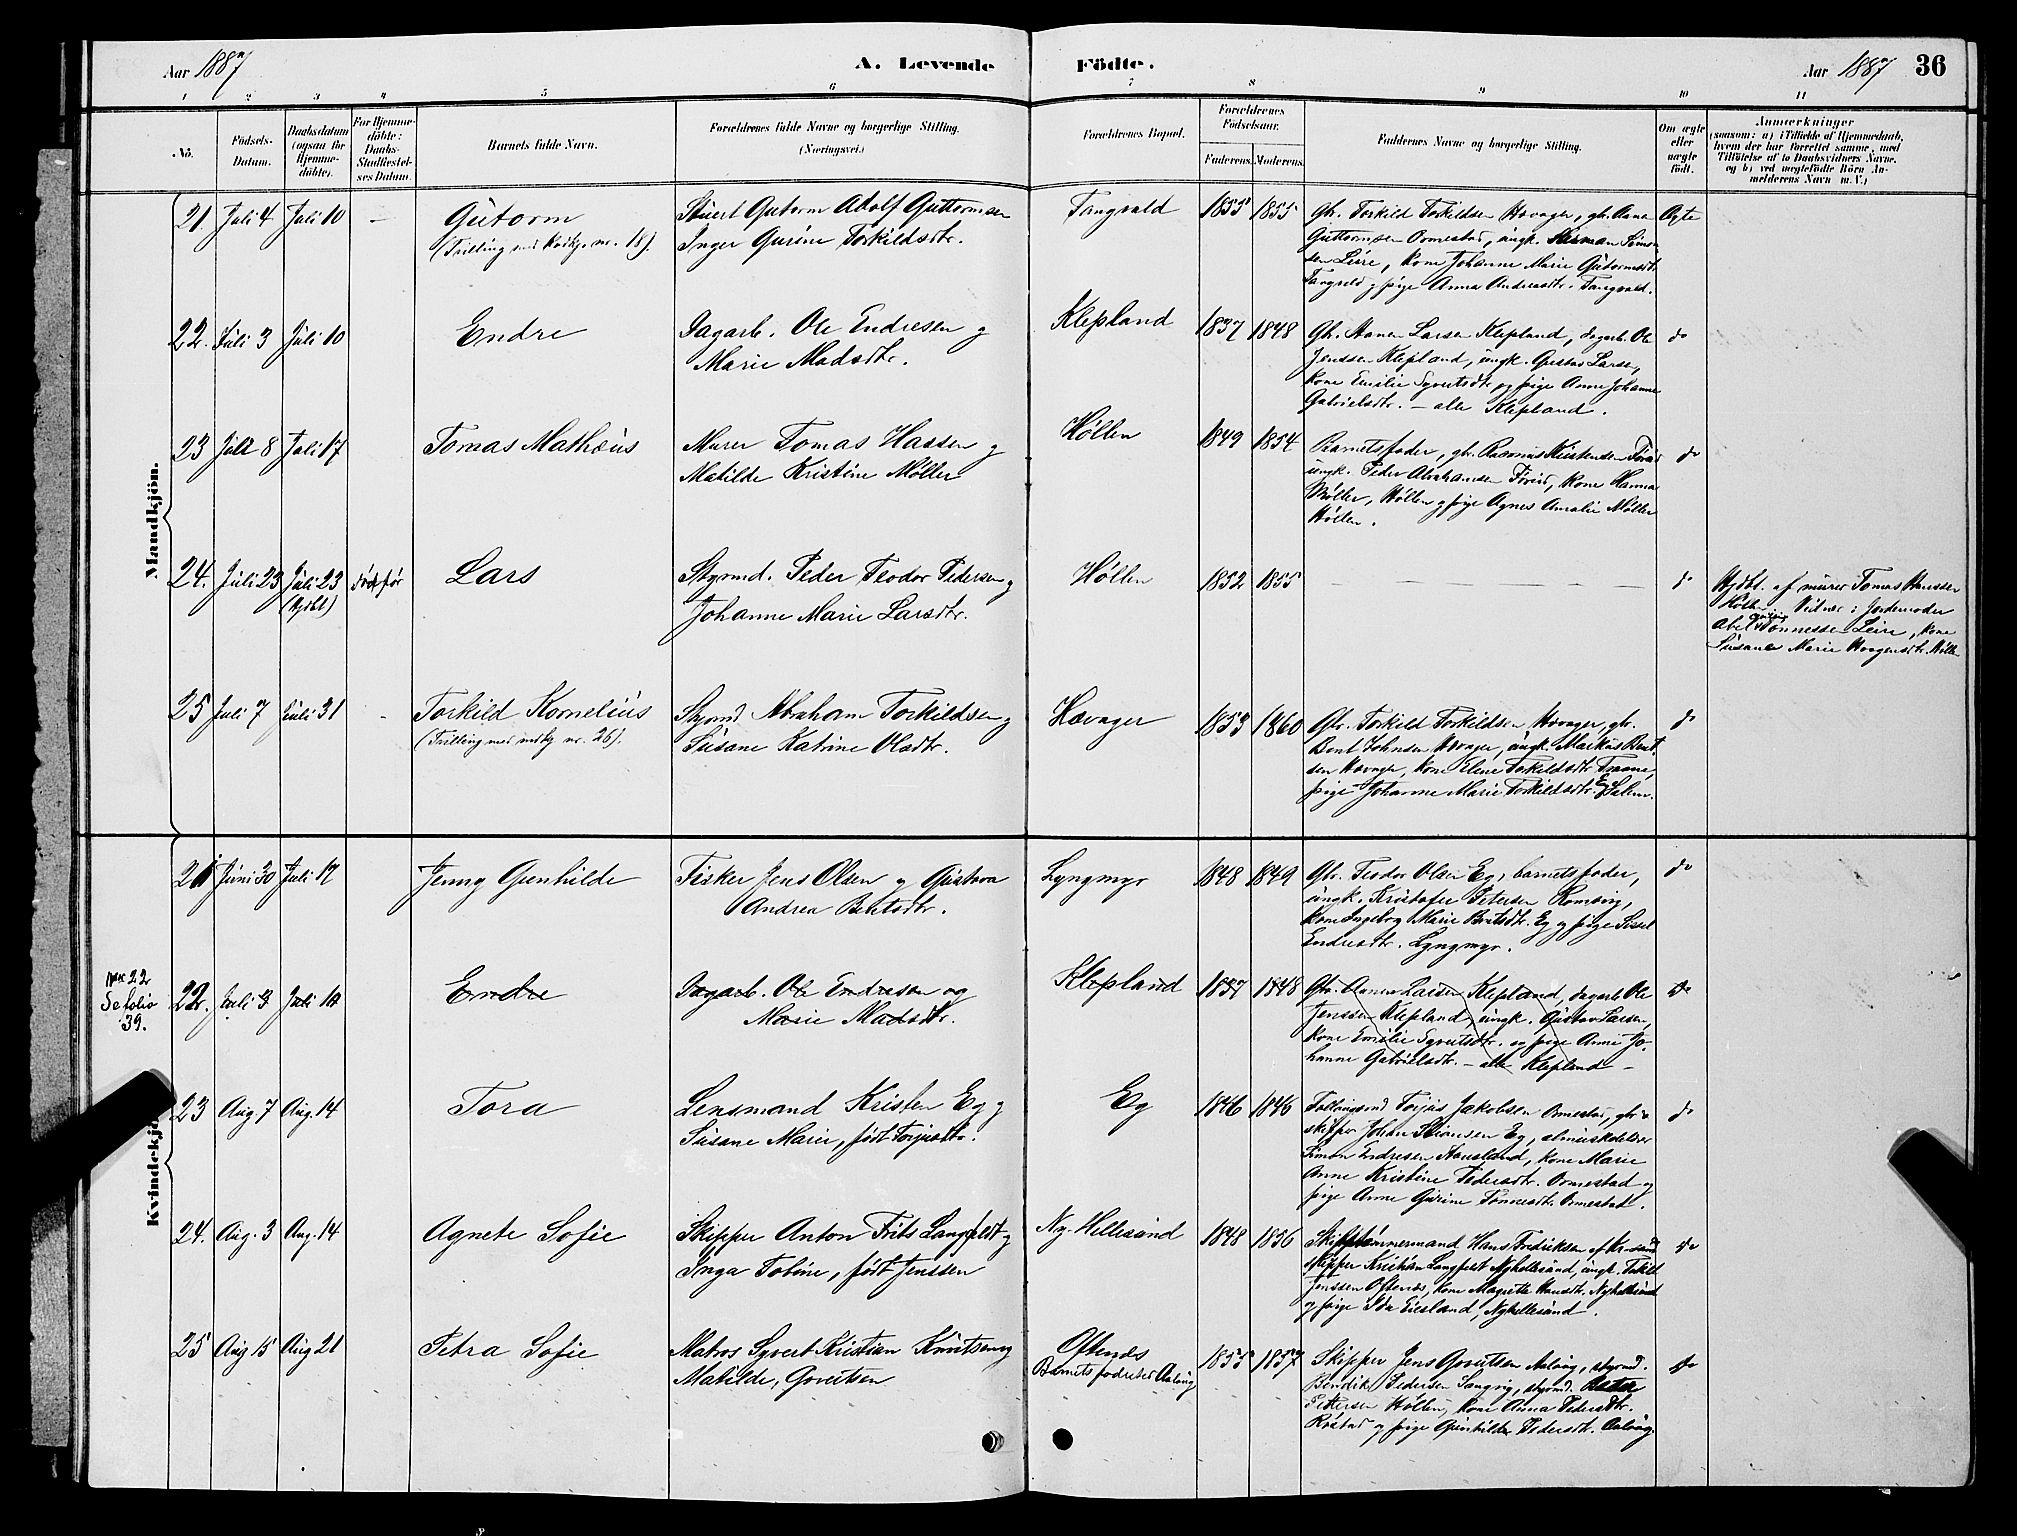 Aar 1887
A. Levende Födte.
Aar 1887 36
1 2 3 4 5 6 7 8 9 10 11
No.
Födsels-
Datum.
Daabsdatum
(ogsaa for
Hjemme-
döbte).
For Hjemme-
döbte:
Daabs-
Stadfæstel-
ses Datum.
Barnets fulde Navn.
Forældrenes fulde Navne og borgerlige Stilling.
(Næringsvei.)
Forældrenes Bopæl.
Forældrenes
Födselsaar.
Faderens. Moderens.
Faddernes Navne og borgerlige Stilling.
Om ægte
eller
uægte
födt.
Anmærkninger
(saasom: a) i Tilfælde af Hjemmedaab,
hvem der har forrettet samme, med
Tilföielse af to Daabsvidners Navne.
og b) ved uægtefödte Börn An-
melderens Navn m. V.)
Mandkjön.
21 Juli 4 Juli 10 – Gutorm
(Tvilling med kvdkj. nr. 18).
Stuert Gutorm Adolf Guttormsen
Inger Gurine Torkildsdtr.
Tangvald 1855 1855
Gbr. Torkild Torkildsen Hovager, gbr. Aane
Guttormsen Ormestad, ungk. Herman Simon-
sen Leire, kone Johanne Marie Gutormsdtr.
Tangvald og pige Anna Andersdtr. Tangvald.
Ægte
22. Juli 3 Juli 10 Endre
Dagarb. Ole Endresen og
Marie Madsdtr.
Klepland 1837 1848
Gbr. Aanen Larsen Klepland, dagarb. Ole
Jenssen Klepland, ungk. Gustav Larse,
kone Emilie Syvertsdtr. og pige Anne Johanne
Gabrielsdtr. – alle Klepland.
do
23 Juli 8 Juli 17 Tomas Mathæus
Murer Tomas Hassen og
Matilde Kristine Møller
Høllen 1849 1854
Barnets fader, gbr. Rasmus Kristensen
ungk. Peder Abrahamsen kone Hanna
Møller, Høllen og pige Agnes Amalie Møller
Høllen.
do
24. Juli 23 Juli 23 død før
(hjdbt)
Lars
Styrmd. Peder Teodor Pedersen og
Johanne Marie Larsdtr.
Høllen 1852 1855
do
Hjdbt. af murer Tomas Hanssen
Høllen. Vidner: Jordemoder
Abel Tønnessen Leire, kone
Susane Marie Haagensdtr. Høllen
25 Juli 7 Juli 31 - Torkild Kornelius
(Tvilling med mdkj. nr. 26).
Styrmd. Abraham Torkildsen og
Susane Katrine Olsdtr.
Hævager 1853 1860
Gbr. Torkild Torkildsen Hovager, gbr.
Bent Johnsen Hovager, ungk. Markus Bent-
sen Hovager, kone Elene Torkildsdtr.
pige Johanne Marie Torkildsdtr.
do
Kvindekjön.
21 Juni 30 Juli 17 Jenny Gunhilde
Fisker Jens Olsen og Gustava
Andrea Bentsdtr.
Lyngmyr 1848 1849
Gbr. Teodor Olsen Eg, barnets fader,
ungk. Kristofer Petersen Romsvig,
kone Ingeborg Marie Bentsdtr. Eg og pige Sissel
Endresdtr. Lyngmyr.
do
No 22
Se folio
39.
22. Juli 3 Juli 10 Endre
Dagarb. Ole Endresen og
Marie Madsdtr.
Klepland 1837 1848
Gbr. Aanen Larsen Klepland, dagarb. Ole
Jenssen Klepland, ungk. Gustav Larsen,
kone Emilie Syvertsdtr. og pige Anne Jo-
hanne Gabrielsdtr. – alle Klepland –
do
23 Aug. 7 Aug. 14 Tora
Lensmand Kristen Eg og
Susane Marie, født Torjusdtr.
Eg 1846 1846
Torjus Jakobsen Ormestad, gbr.
skipper Johan Eg,
Simon Endresen Hausland, kone Marie
Anne Kristine Pedersdtr. Ormestad og
pige Anne Gurine Tønnesdtr. Ormestad.
do
24. Aug. 3 Aug. 14 Agnete Sofie
Skipper Anton Frits Langfeldt og
Inga Tobine, født Jenssen
Ny-Hellesund 1848 1856
Hans Fredriksen af Kr-sand
skipper Kristian Langfelt Nyhellesund, ungk.
Jenssen Oftenes, kone Magrete Nyhellesund
og pige Ida Eiesland, Nyhellesund.
do
25 Aug 15 Aug 21 Petra Sofie
Matros Syvert Kristian Knutsen og
Matilde, Govertsen
Oftenes
Barnets fødested Aalvig
1855 1857
Skipper Jens Govertsen Aalvig, styrmd.
Bendik Pedersen Langvig, styrmd. Peter
Pettersen Høllen, kone Anna Pedersdtr.
og pige Gunhilde Pedersdtr. Aalvig.
do